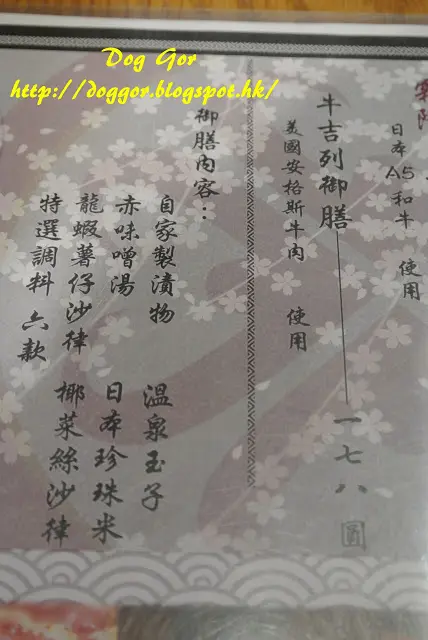 Dog Gor
http://doggor.blogspot.hk/
日本A5和牛 使用
牛吉列御膳——一七八圓
美國安格斯牛肉 使用
御膳內容：
自家製漬物 溫泉玉子
赤味噌湯 日本珍珠米
龍蝦薯仔沙律 椰菜絲沙律
特選調料 六款